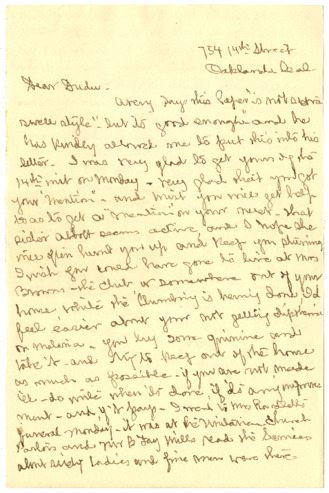 754 14th Street
Oakland Cal
Dear Dudu.
Avery says this paper "is not extra
swell style" but is good enough" and he
has kindly allowed me to put this into his
letter. I was very glad to get yours of the
14th inst on Monday - very glad that you got
your "mention" - and trust you will get help
so as to get a "mention" on your next - that
Abbott seems active, and I hope she
will often hunt you up and keep you pluming
I wish you could have gone to live at Mrs
Browns - the Club or somewhere out of your
home, while the Plumbing is being done. I'd
feel easier about your not getting diptheria
or malaria - you buy some quinine and
take it - and try to keep out of the house
as much as possible - if you are not made
ill - so will when its done, if its any improve
ment - and y't pays - I went to Mrs
funeral Monday - it was at the Unitarian Church
Parlors and Mr B Fay Mills read the Services
about sixty Ladies and five men were there